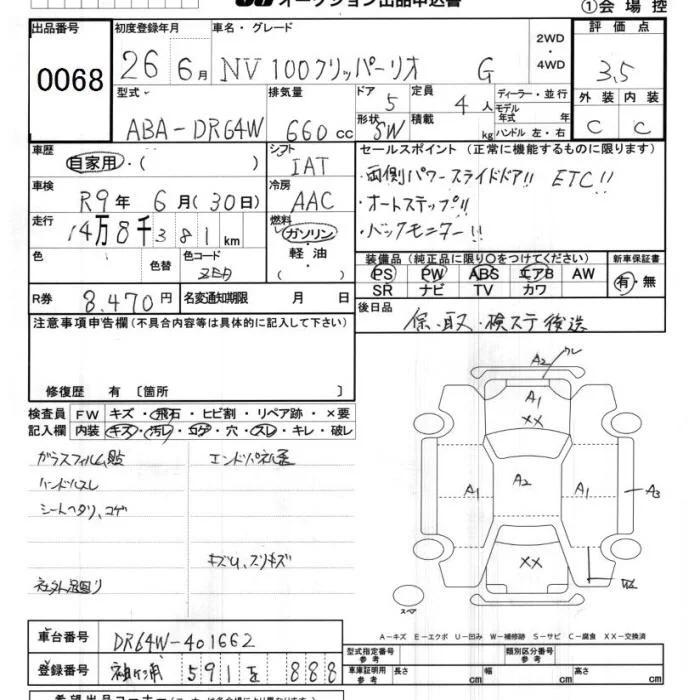 オークション出品申込書
①会場控
出品番号 初度登録年月 車名・グレード 2WD ・ 4WD 評価点
0068 26 6月 NV100クリッパーリオ G 3.5
型式 排気量 ドア 5 定員 4人 ディーラー・並行 外装 内装
モデル年式 年
ABA-DR64W 660cc 形状 SW 積載 kg ハンドル 左・右 C C
車歴 シフト セールスポイント(正常に機能するものに限ります)
自家用・( ) IAT ・両側パワースライドドア!! ETC!!
車検 冷房 ・オートステップ!!
R9年 6月(30日) AAC ・バックモニター!!
走行 14万8千381km 燃料 ガソリン・軽油・( )
色 色替 色コード ZBD
装備品(純正品に限り○をつけてください) 新車保証書
PS PW ABS エアB AW 有・無
SR ナビ TV カワ
R券 8,470円 名変通知期限 月 日 後日品
保・取・検ステ後送
注意事項申告欄(不具合内容等は具体的に記入して下さい)
修復歴 有〔箇所 〕
検査員 FW キズ・飛石・ヒビ割・リペア跡・×要
記入欄 内装 キズ・汚レ・コゲ・穴・スレ・キレ・破レ
ガラスフィルム貼
ハンドルスレ
シートヘタリ、コゲ
キズU、スリキズ
社外足回り
A2 ワレ
A1
XX
A1 A2 A1 A3
XX
スペア
A-キズ E-エクボ U-凹み W-補修跡 S-サビ C-腐食 XX-交換済
車台番号 DR64W-401662 型式指定番号 参考 類別区分番号 参考
登録番号 591を 888 車庫証明用 参考 長さ cm 幅 cm 高さ cm